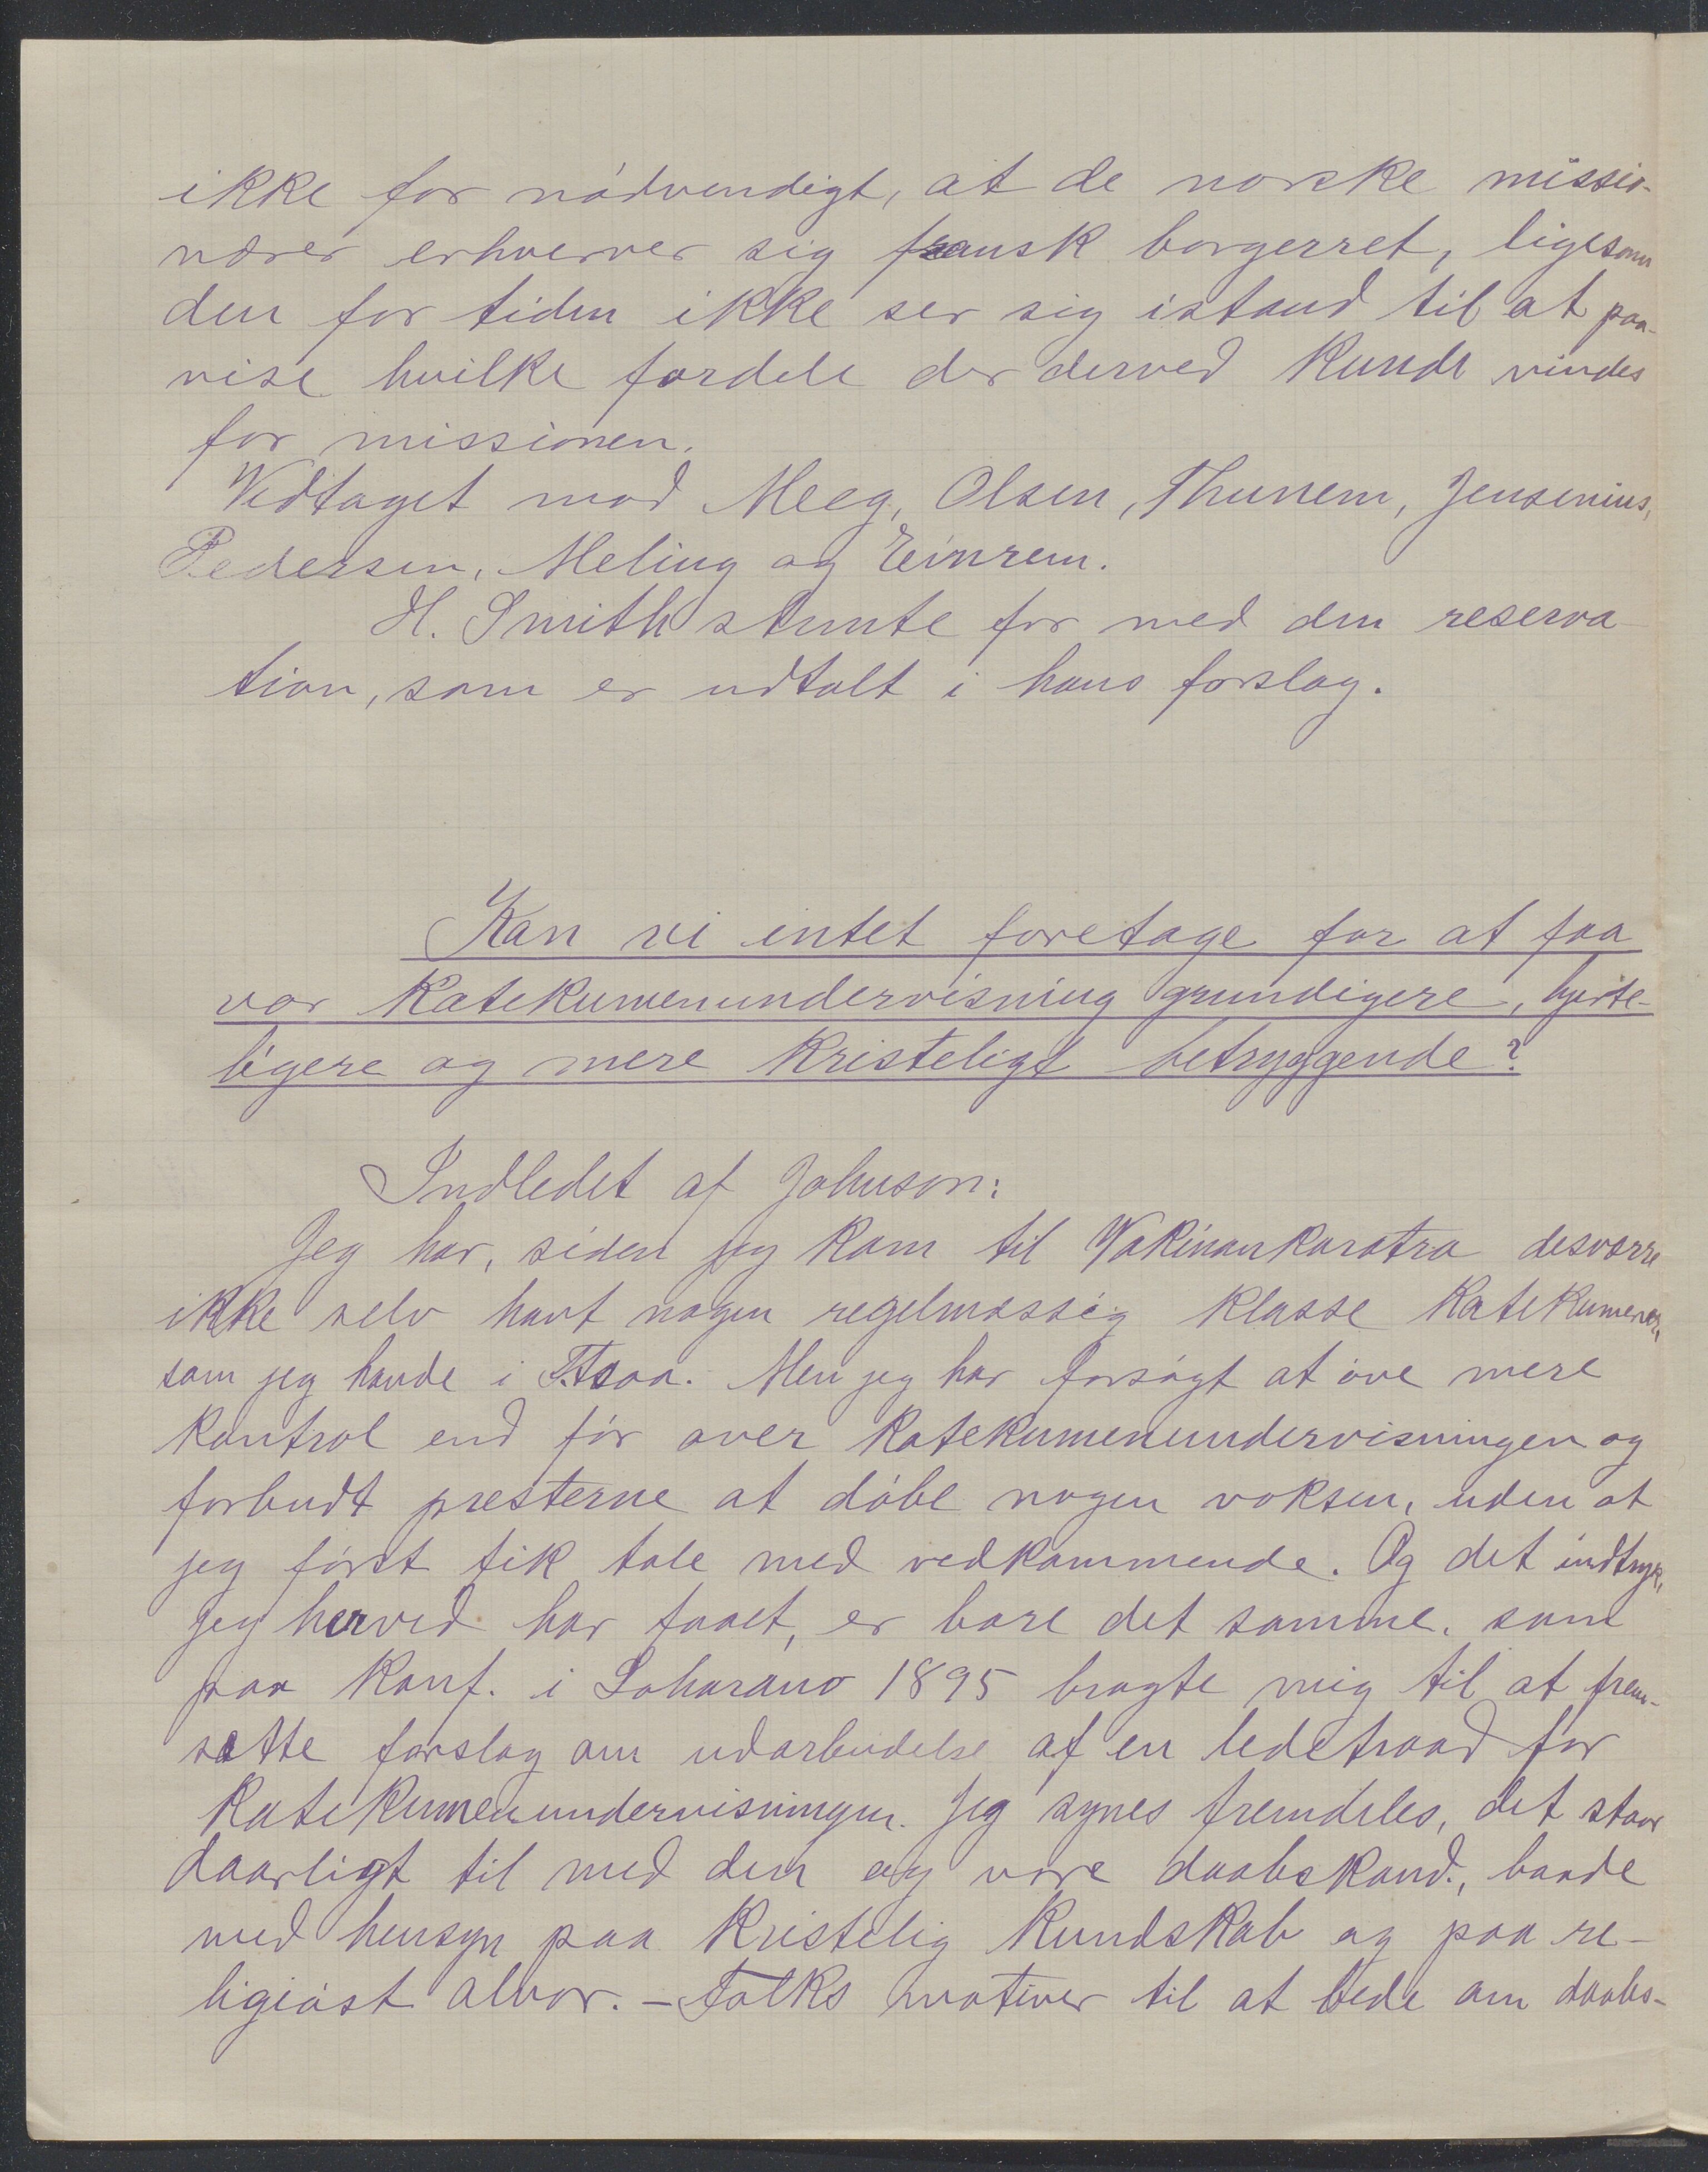 ikke for nødvendigt, at de norske missio-
nærer erhverver sig fransk borgerret, ligesom
den for tiden ikke ser sig istand til at paa-
vise hvilke fordele der derved kunde vindes
for missionen.
Vedtaget mod Meeg, Olsen, Thunem, Jensenius,
Pedersen, Meling og Einrem.
H. Smith stemte for med den reserva
tion, som er udtalt i hans forslag.
Kan vi intet foretage for at faa
vor katekumenundervisning grundigere, hjerte-
ligere og mere kristeligt betryggende?
Indledet af Johnson:
Jeg har, siden jeg kom til Vakinankaratra desværre
ikke selv havt nogen regelmæssig klasse katekumener,
som jeg havde i Ftsoa. Men jeg har forsøgt at øve mere
kontrol end før over katekumenundervisningen og
forbudt presterne at døbe nogen voksen, uden at
jeg først fik tale med vedkommende. Og det indtryk,
jeg herved har faaet, er bare det samme, som
paa konf. i Loharano 1895 bragte mig til at frem-
sætte forslag om udarbeidelse af en ledetraad for
katekumenundervisningen. Jeg synes fremdeles, det staar
daarligt til med den og vore daabskand., baade
med hensyn paa kristelig kundskab og paa re-
ligiøst alvor. - Folks motiver til at bede om daabs-